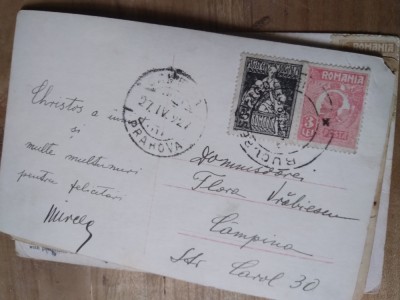 Christos a în
și
multe mulțumiri
pentru felicitări
Mircea
27.IV.927
PRAHOVA
ROMANIA
3
LEI
Domnișoarei
Flora Vrăbiescu
Câmpina
Str Carol 30
ROMANIA